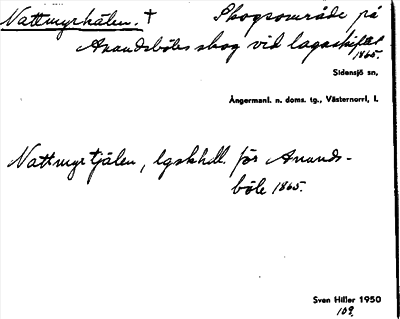 Nattmyrkälen. † Skogsområde på
Anundsböles skog vid lagaskiftet
1865.
Sidensjö sn,
Ångermanl. n. doms. tg., Västernorrl. l.
Nattmyrtjälen, lgskhdl. för Anunds-
böle 1865.
Sven Hiller 1950
109.